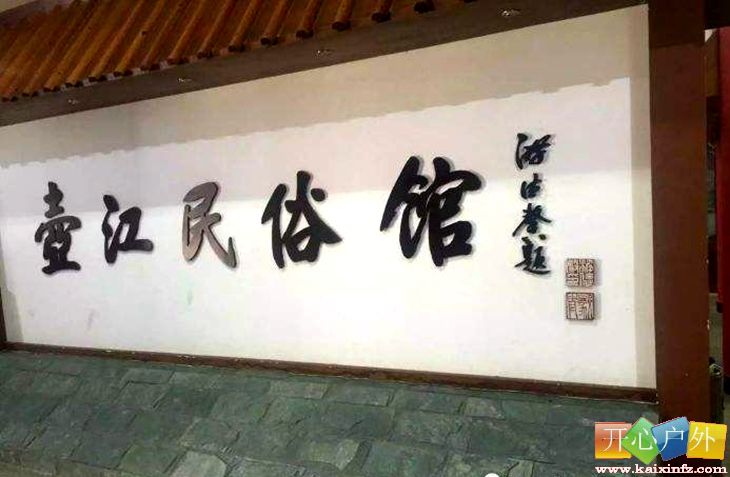 壶江民俗馆
开心户外
www.kaixinfz.com